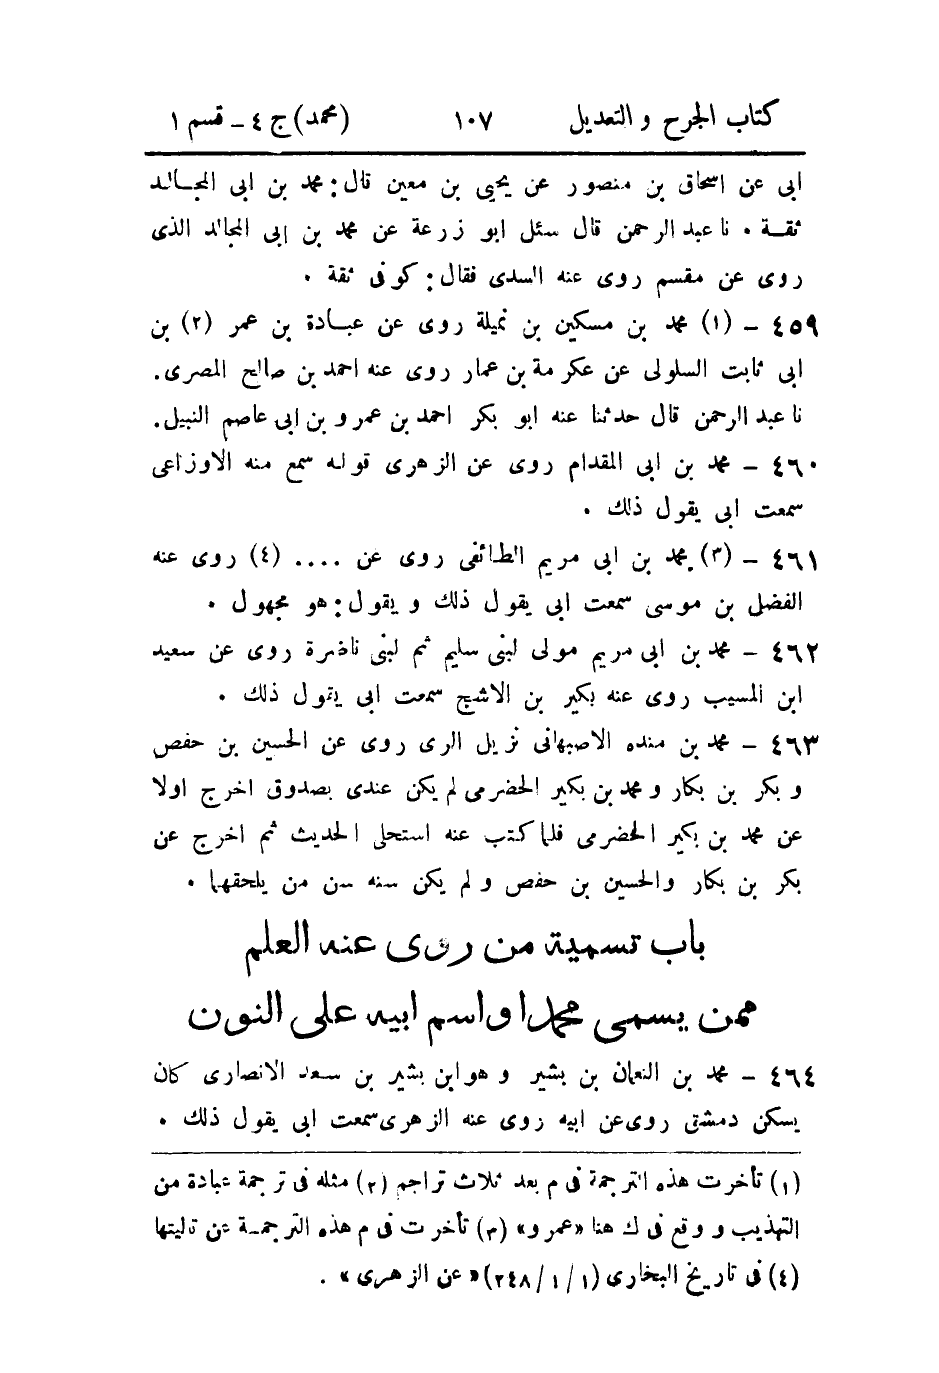 كتاب الجرح و التعديل ١٠٧ (محمد) ج ٤ ـ قسم ١
ابى عن اسحاق بن منصور عن يحيى بن معين قال: محمد بن ابى المجالد
ثقة . نا عبد الرحمن قال سئل ابو زرعة عن محمد بن ابى المجالد الذى
روى عن مقسم روى عنه السدى فقال: كوفى ثقة .
٤٥٩ ـ (١) محمد بن مسكين بن نميلة روى عن عبادة بن عمر (٢) بن
ابى ثابت السلولى عن عكرمة بن عمار روى عنه احمد بن صالح المصرى.
نا عبد الرحمن قال حدثنا عنه ابو بكر احمد بن عمرو بن ابى عاصم النبيل.
٤٦٠ ـ محمد بن ابى المقدام روى عن الزهرى قوله سمع منه الاوزاعى
سمعت ابى يقول ذلك .
٤٦١ ـ (٣) محمد بن ابى مريم الطائفى روى عن .... (٤) روى عنه
الفضل بن موسى سمعت ابى يقول ذلك و يقول: هو مجهول .
٤٦٢ ـ محمد بن ابى مريم مولى لبنى سليم ثم لبنى ناضرة روى عن سعيد
ابن المسيب روى عنه بكير بن الاشج سمعت ابى يقول ذلك .
٤٦٣ ـ محمد بن منده الاصبهانى نزيل الرى روى عن الحسين بن حفص
و بكر بن بكار و محمد بن بكير الحضرمى لم يكن عندى بصدوق اخرج اولا
عن محمد بن بكير الحضرمى فلما كتب عنه استحلى الحديث ثم اخرج عن
بكر بن بكار والحسين بن حفص و لم يكن سنه سن من يلحقهما .
باب تسمية من روى عنه العلم
ممن يسمى محمدا واسم ابيه على النون
٤٦٤ ـ محمد بن النعمان بن بشير و هو ابن بشير بن سعد الانصارى كان
يسكن دمشق روى عن ابيه روى عنه الزهرى سمعت ابى يقول ذلك .
(١) تأخرت هذه الترجمة فى م بعد ثلاث تراجم (٢) مثله فى ترجمة عبادة من
التهذيب و وقع فى ك هنا «عمرو» (٣) تأخرت فى م هذه الترجمة عن تاليتها
(٤) فى تاريخ البخارى (١/١/٢٤٨) «عن الزهرى» .